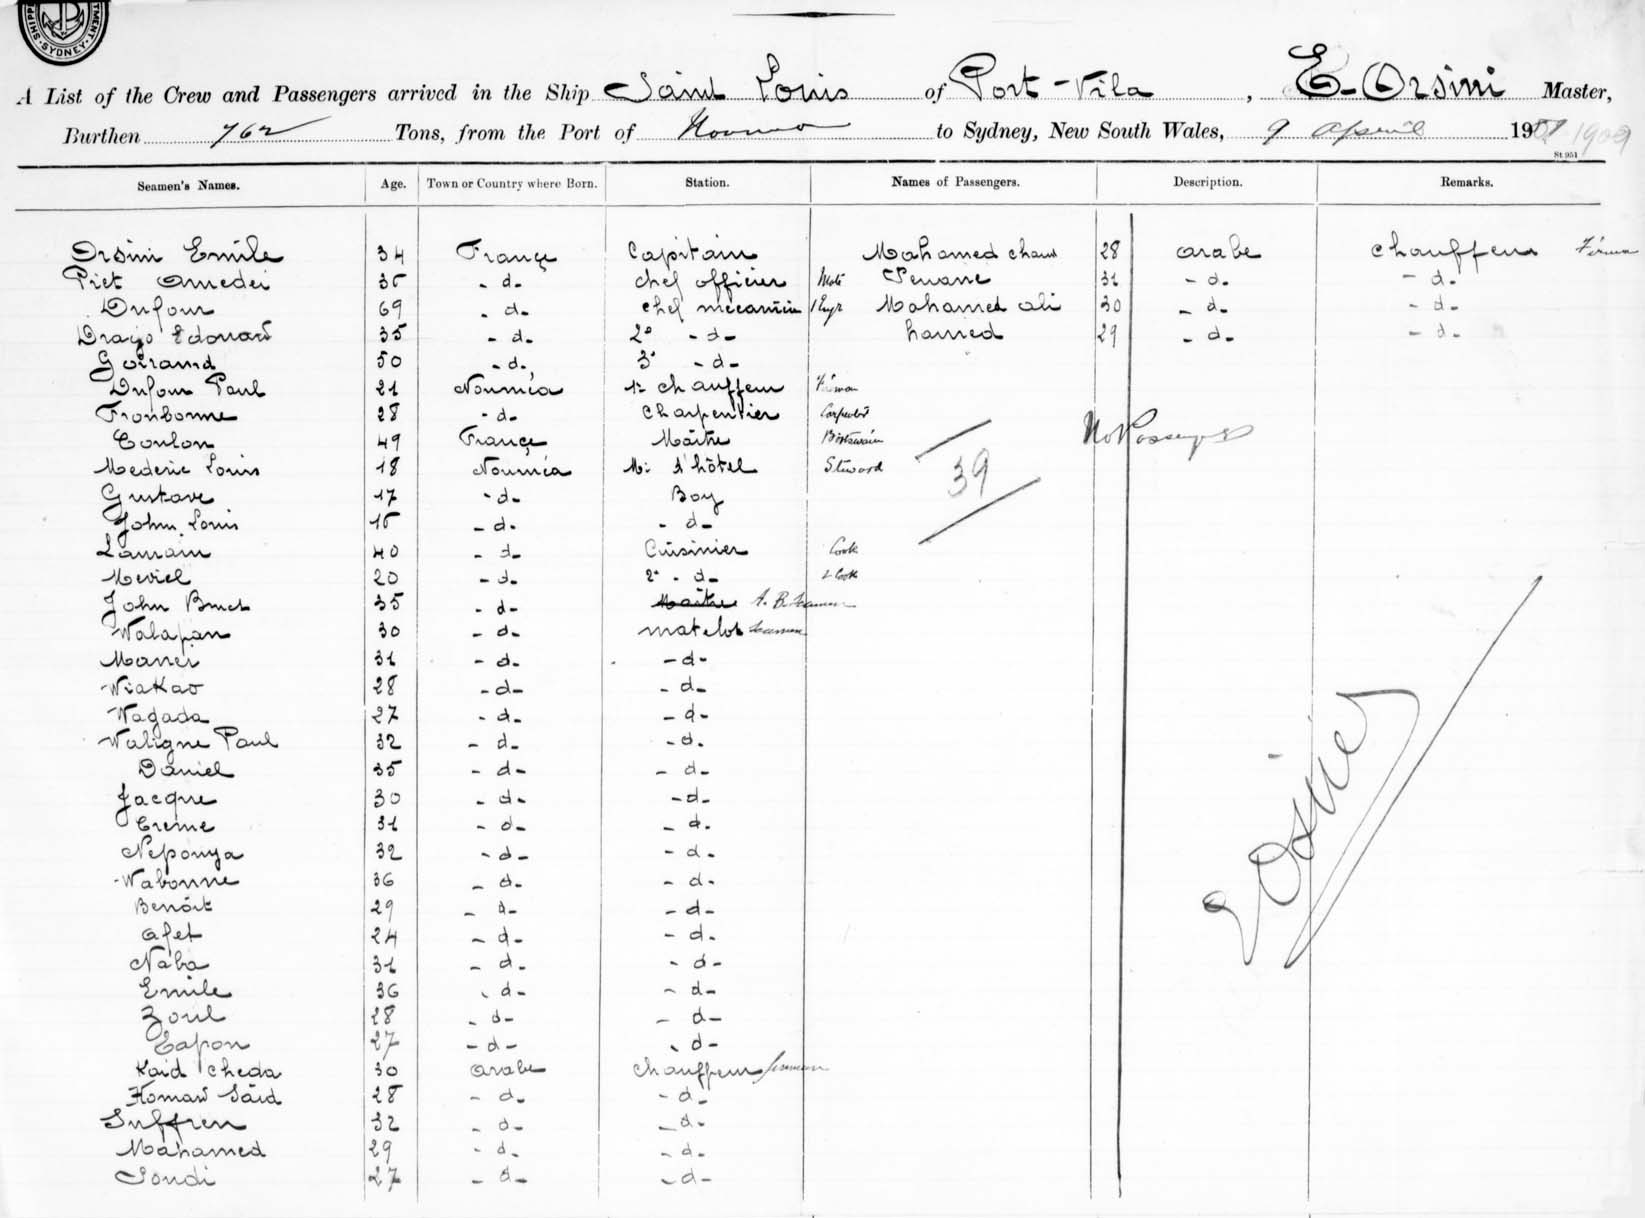 SYDNEY
A List of the Crew and Passengers arrived in the Ship Saint Louis of Port-Vila, E. Orsini Master,
Burthen 762 Tons, from the Port of Noumea to Sydney, New South Wales, 9 April 1909 1909
St 951
Seamen's Names. Age. Town or Country where Born. Station. Names of Passengers. Description. Remarks.
Orsini Emile 34 France Capitain Mahamed 28 arabe chauffeur
Piet Amedei 35 - d- chef officier Mate 31 - d- - d-
Dufour 69 - d- chef mecanicien Mahamed ali 30 - d- - d-
Edouard 35 - d- 2° - d- hamed 29 - d- - d-
Goirand 50 - d- 3° - d-
Dufour Paul 21 Nouméa 1r chauffeur Fireman
Fronbonne 28 - d- charpentier Carpenter
Coulon 49 France Maître No Passengers
Mederic Louis 18 Nouméa Me d'hôtel Steward 39
Gustave 17 - d- Boy
John Louis 15 - d- - d-
Lamain 40 - d- Cuisinier Cook
Meriel 20 - d- 2° - d- 2 Cook
John 35 - d- Maitre A. B. Seaman
Walapan 30 - d- matelot Seaman
Maner 31 - d- - d-
Wiakao 28 - d- - d-
Wagada 27 - d- - d-
Waligne Paul 32 - d- - d-
Daniel 35 - d- - d-
Jacque 30 - d- - d-
Creme 31 - d- - d-
Neponya 32 - d- - d-
Wabonne 36 - d- - d-
Benoit 29 - d- - d-
Apet 24 - d- - d-
Naba 31 - d- - d-
Emile 36 - d- - d-
Zoul 28 - d- - d-
Eapon 27 - d- - d-
Kaid Cheda 30 arabe chauffeur fireman
Saïd 28 - d- - d-
Suffren 32 - d- - d-
Mahamed 29 - d- - d-
Sondi 27 - d- - d-